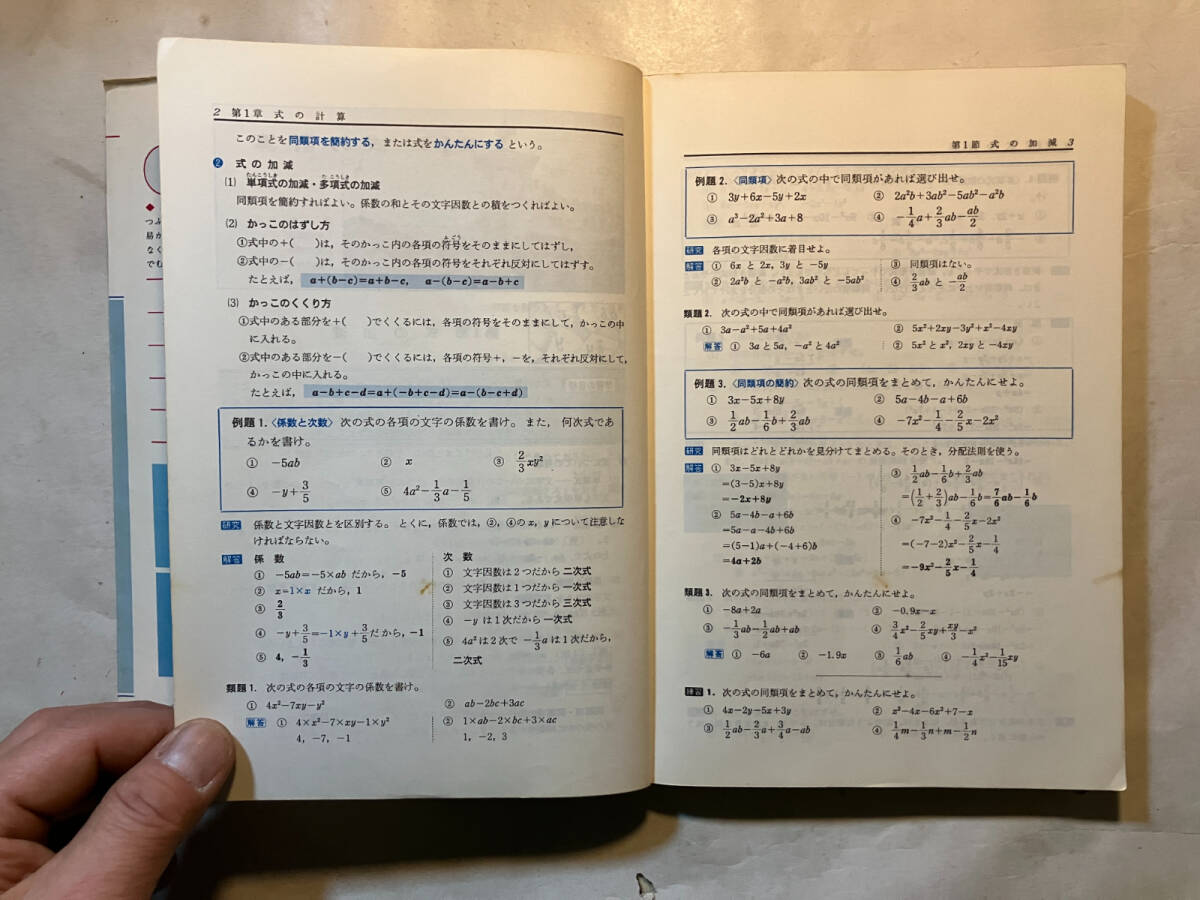 つぶ
易が
なく
でも
2 第1章 式の計算
このことを同類項を簡約する，または式をかんたんにする という。
❷ 式の加減
(1) 単項式の加減・多項式の加減
同類項を簡約すればよい。係数の和とその文字因数との積をつくればよい。
(2) かっこのはずし方
①式中の+( )は，そのかっこ内の各項の符号をそのままにしてはずし，
②式中の-( )は，そのかっこ内の各項の符号をそれぞれ反対にしてはずす。
たとえば， a+(b-c)=a+b-c, a-(b-c)=a-b+c
(3) かっこのくくり方
①式中のある部分を+( )でくくるには，各項の符号をそのままにして，かっこの中
に入れる。
②式中のある部分を-( )でくくるには，各項の符号+，-を，それぞれ反対にして，
かっこの中に入れる。
たとえば， a-b+c-d=a+(-b+c-d)=a-(b-c+d)
例題 1.〈係数と次数〉 次の式の各項の文字の係数を書け。また，何次式であ
るかを書け。
① -5ab ② x ③ 2/3xy²
④ -y+3/5 ⑤ 4a²-1/3a-1/5
研究 係数と文字因数とを区別する。とくに，係数では，②，④のx，yについて注意しな
ければならない。
解答 係数
① -5ab=-5×ab だから，-5
② x=1×x だから，1
③ 2/3
④ -y+3/5=-1×y+3/5だから，-1
⑤ 4，-1/3
次数
① 文字因数は2つだから 二次式
② 文字因数は1つだから 一次式
③ 文字因数は3つだから 三次式
④ -y は1次だから 一次式
⑤ 4a²は2次で -1/3aは1次だから，
二次式
類題 1. 次の式の各項の文字の係数を書け。
① 4x²-7xy-y² ② ab-2bc+3ac
解答 ① 4×x²-7×xy-1×y² ② 1×ab-2×bc+3×ac
4, -7, -1 1, -2, 3
第1節 式の加減 3
例題 2.〈同類項〉次の式の中で同類項があれば選び出せ。
① 3y+6x-5y+2x ② 2a²b+3ab²-5ab²-a²b
③ a³-2a²+3a+8 ④ -1/4a+2/3ab-ab/2
研究 各項の文字因数に着目せよ。
解答 ① 6x と 2x, 3y と -5y ③ 同類項はない。
② 2a²b と -a²b, 3ab² と -5ab² ④ 2/3ab と -ab/2
類題 2. 次の式の中で同類項があれば選び出せ。
① 3a-a²+5a+4a² ② 5x²+2xy-3y²+x²-4xy
解答 ① 3aと5a, -a²と4a² ② 5x²とx², 2xyと-4xy
例題 3.〈同類項の簡約〉次の式の同類項をまとめて，かんたんにせよ。
① 3x-5x+8y ② 5a-4b-a+6b
③ 1/2ab-1/6b+2/3ab ④ -7x²-1/4-2/5x-2x²
研究 同類項はどれとどれかを見分けてまとめる。そのとき，分配法則を使う。
解答 ① 3x-5x+8y
=(3-5)x+8y
=-2x+8y
② 5a-4b-a+6b
=5a-a-4b+6b
=(5-1)a+(-4+6)b
=4a+2b
③ 1/2ab-1/6b+2/3ab
=(1/2+2/3)ab-1/6b=7/6ab-1/6b
④ -7x²-1/4-2/5x-2x²
=(-7-2)x²-2/5x-1/4
=-9x²-2/5x-1/4
類題 3. 次の式の同類項をまとめて，かんたんにせよ。
① -8a+2a ② -0.9x-x
③ -1/3ab-1/2ab+ab ④ 3/4x²-2/5xy+xy/3-x²
解答 ① -6a ② -1.9x ③ 1/6ab ④ -1/4x²-1/15xy
練習 1. 次の式の同類項をまとめて，かんたんにせよ。
① 4x-2y-5x+3y ② x²-4x-6x²+7-x
③ 1/2ab-2/3a+3/4a-ab ④ 1/4m-1/3n+m-1/2n